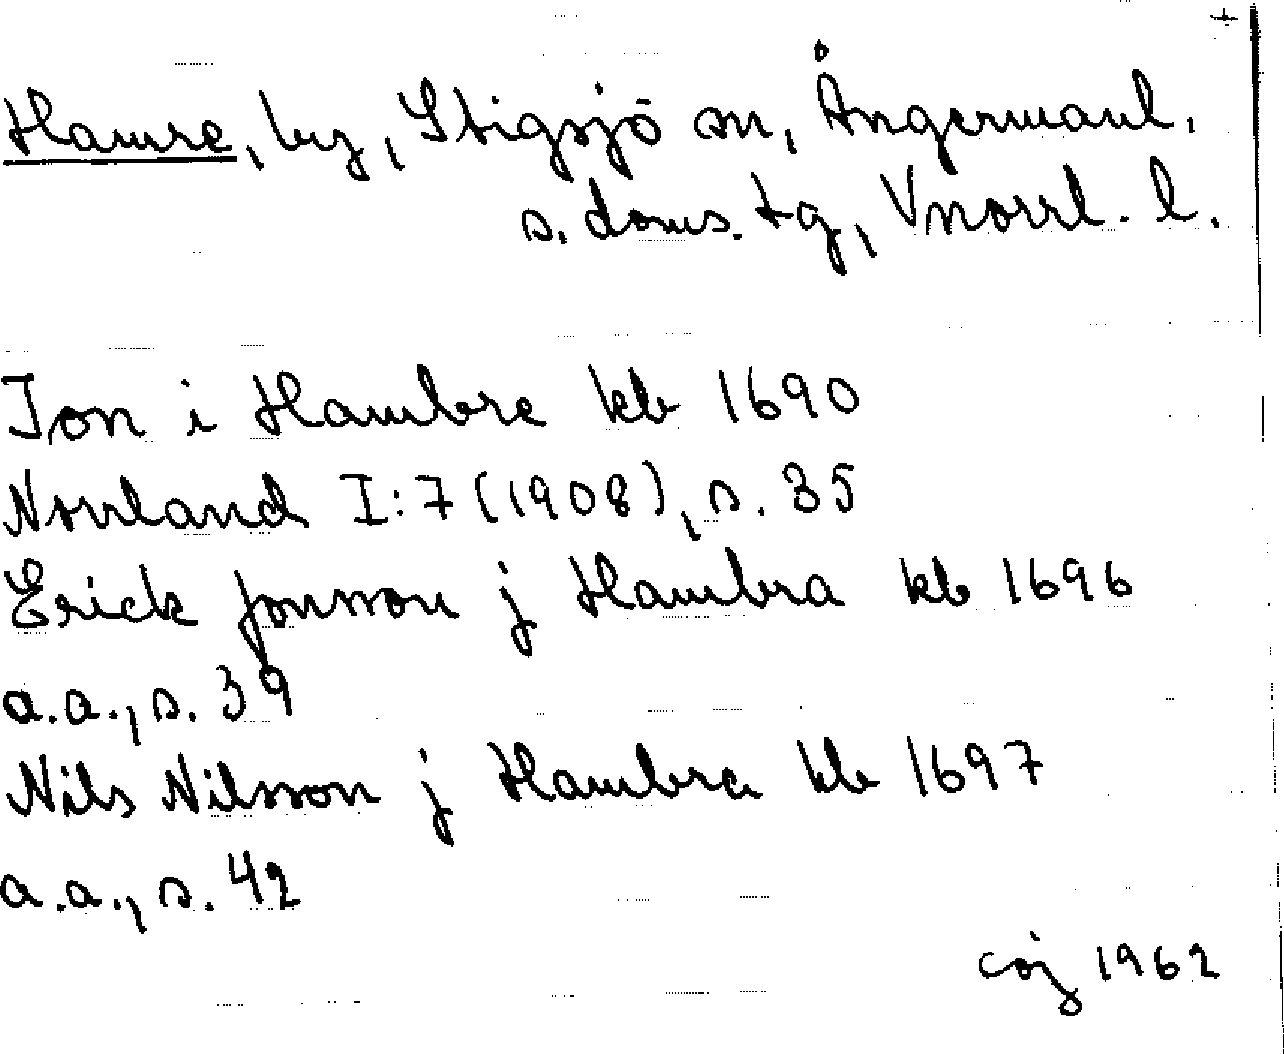 Hamre, by, Stigsjö sn, Ångermanl.
s. doms. tg, Vnorrl. l.
Jon i Hambre kb 1690
Norrland I:7 (1908), s. 35
Erick Jonsson j Hambra kb 1696
a.a., s. 39
Nils Nilsson j Hambra kb 1697
a.a., s. 42
coj 1962